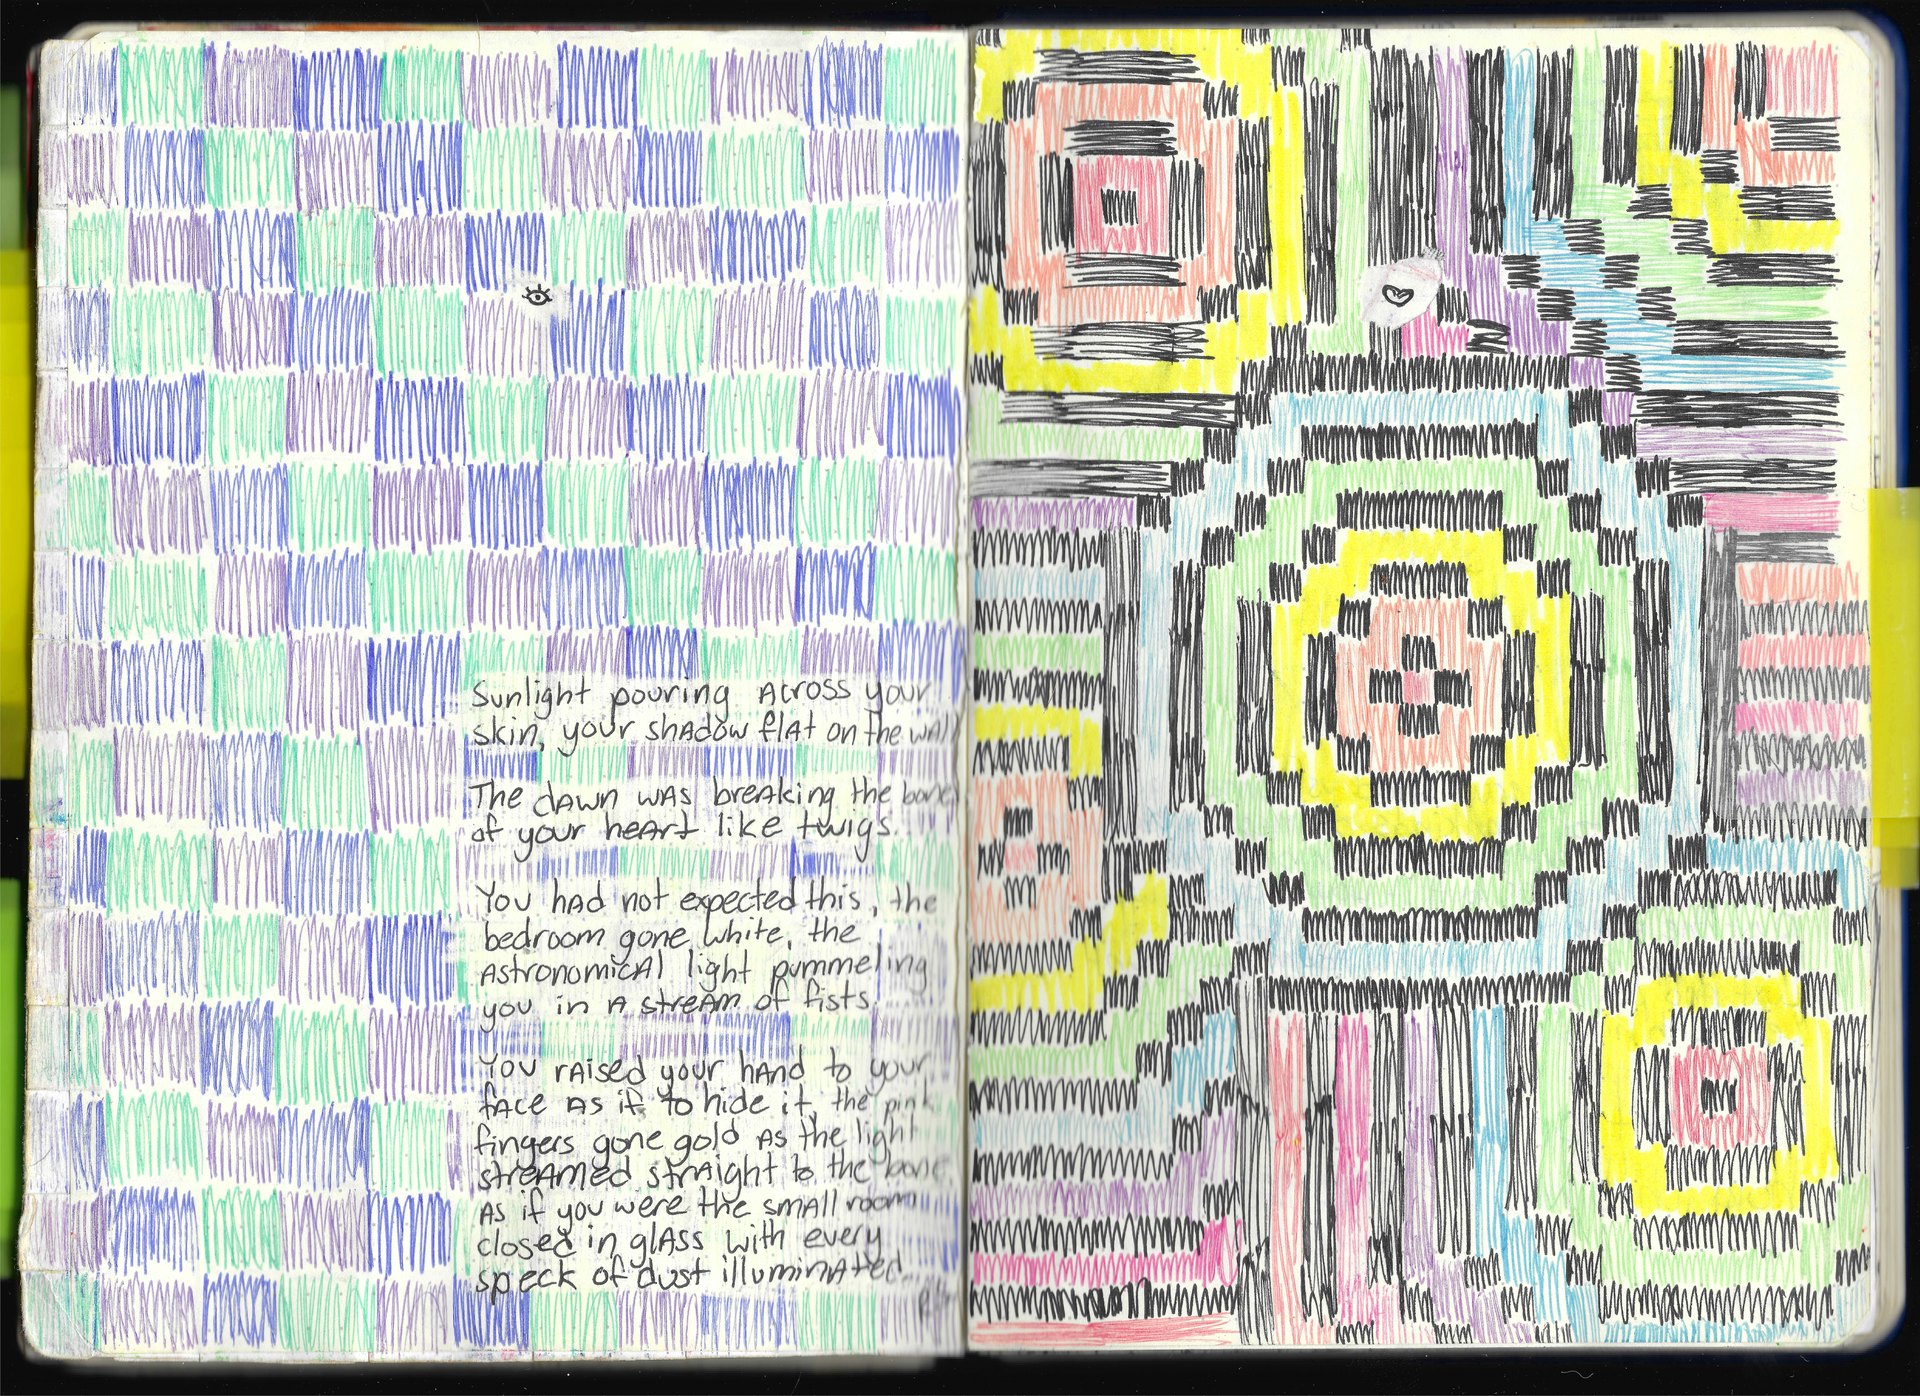 Sunlight pouring across your
skin, your shadow flat on the wall
The dawn was breaking the bones
of your heart like twigs.
You had not expected this, the
bedroom gone white, the
astronomical light pummeling
you in a stream of fists.
You raised your hand to your
face as if to hide it, the pink
fingers gone gold as the light
streamed straight to the bone
as if you were the small room
closed in glass with every
speck of dust illuminated.